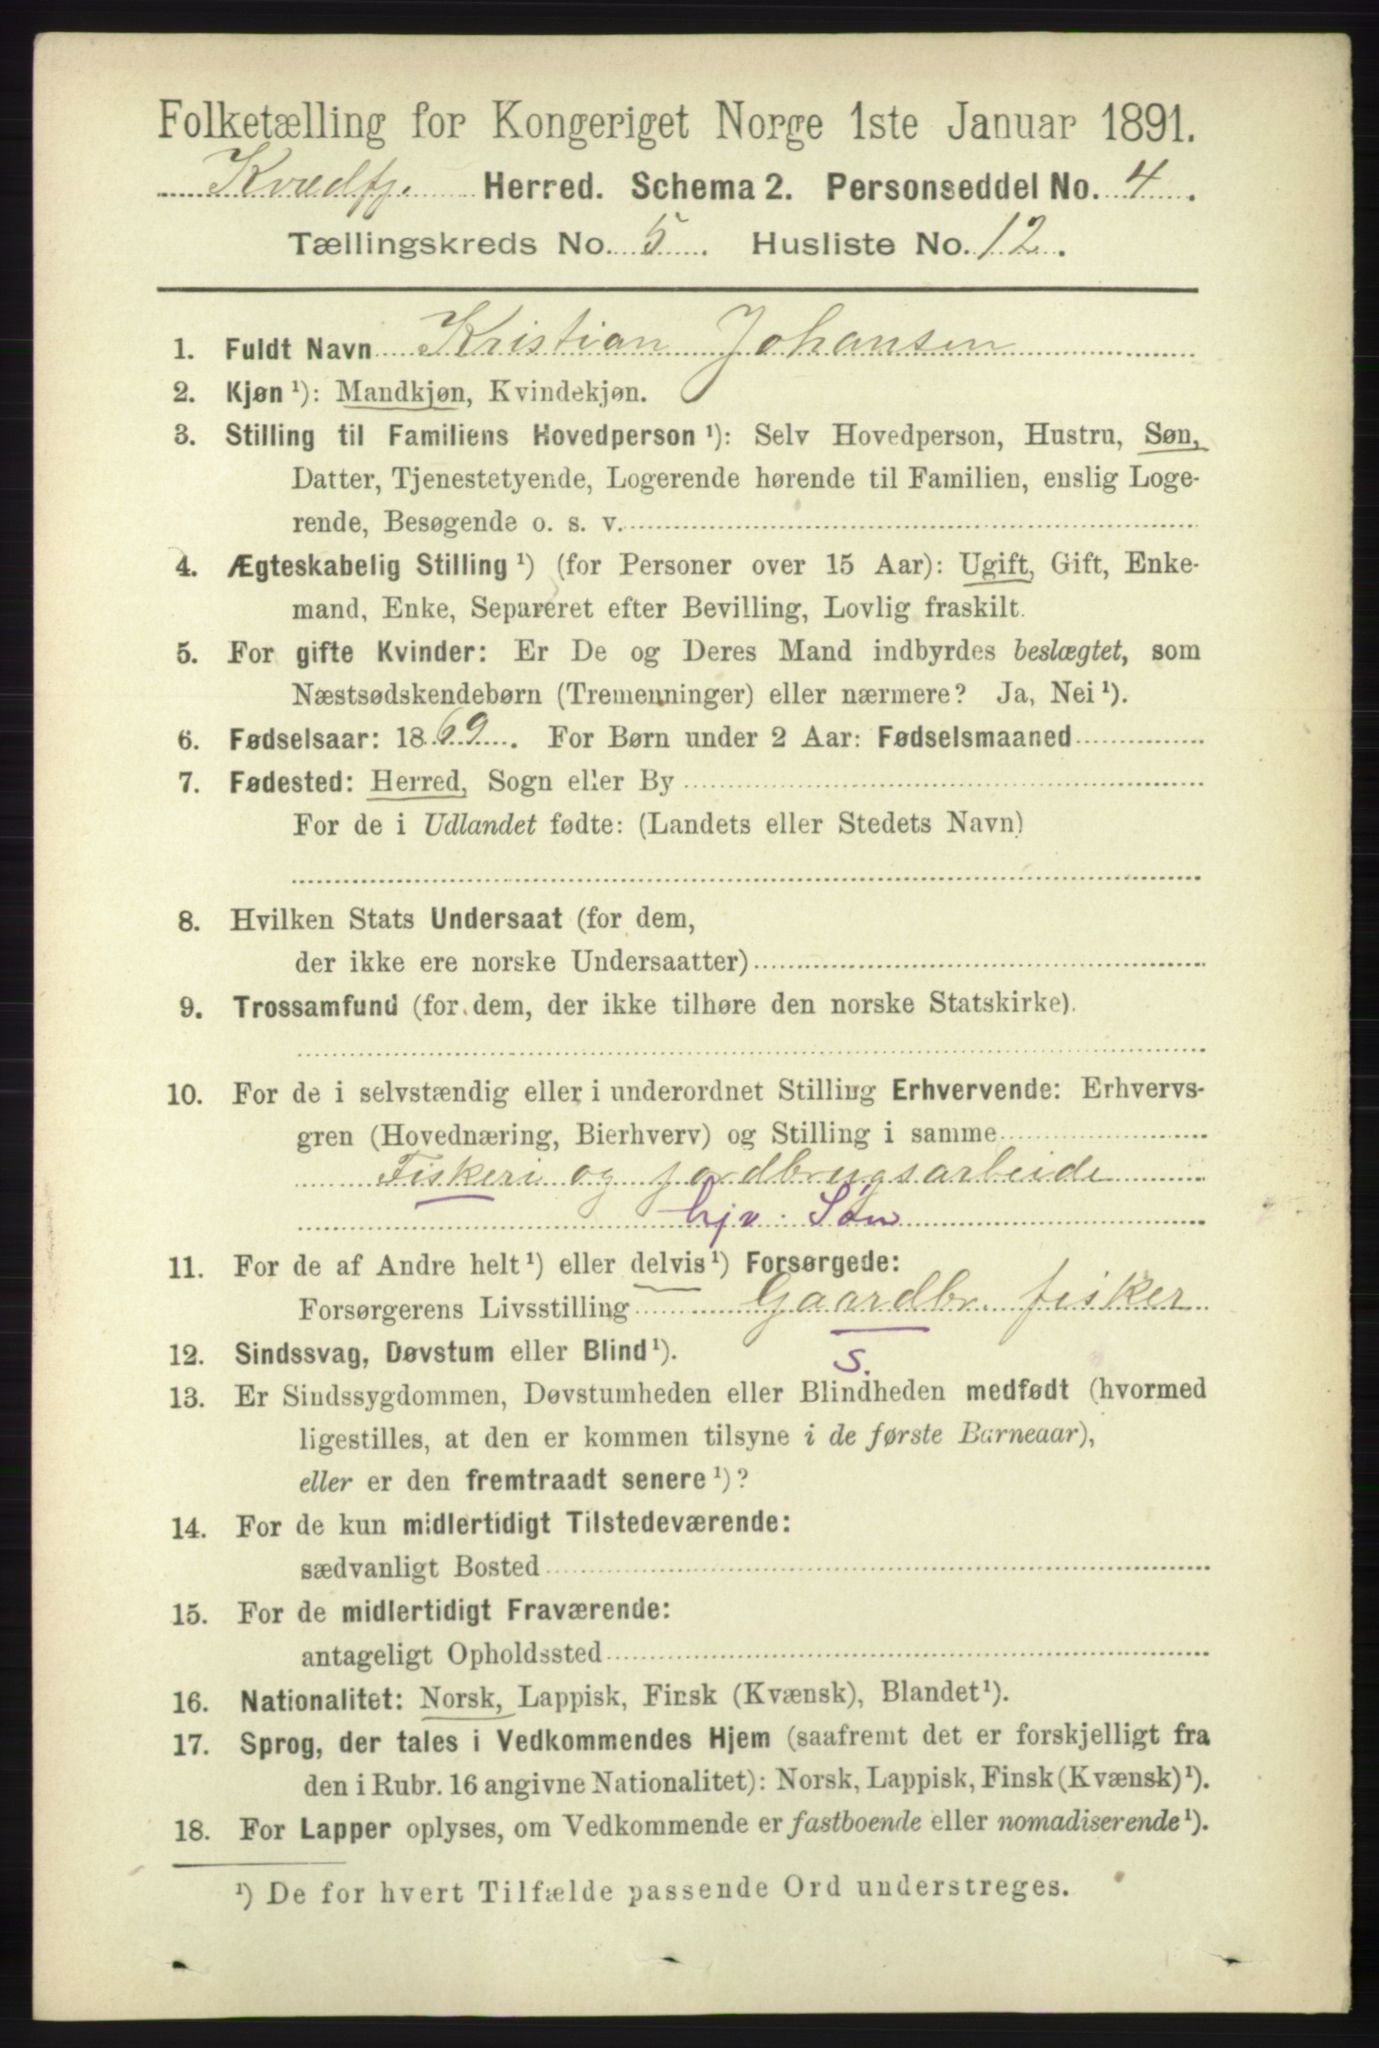 Folketælling for Kongeriget Norge 1ste Januar 1891.
Kvædfj. Herred. Schema 2. Personseddel No. 4.
Tællingskreds No. 5. Husliste No. 12.
1. Fuldt Navn Kristian Johansen
2. Kjøn ¹): Mandkjøn, Kvindekjøn.
3. Stilling til Familiens Hovedperson ¹): Selv Hovedperson, Hustru, Søn,
Datter, Tjenestetyende, Logerende hørende til Familien, enslig Loge-
rende, Besøgende o. s. v.
4. Ægteskabelig Stilling ¹) (for Personer over 15 Aar): Ugift, Gift, Enke-
mand, Enke, Separeret efter Bevilling, Lovlig fraskilt.
5. For gifte Kvinder: Er De og Deres Mand indbyrdes beslægtet, som
Næstsødskendebørn (Tremenninger) eller nærmere? Ja, Nei ¹).
6. Fødselsaar: 1869. For Børn under 2 Aar: Fødselsmaaned
7. Fødested: Herred, Sogn eller By
For de i Udlandet fødte: (Landets eller Stedets Navn)
8. Hvilken Stats Undersaat (for dem,
der ikke ere norske Undersaatter)
9. Trossamfund (for dem, der ikke tilhøre den norske Statskirke).
10. For de i selvstændig eller i underordnet Stilling Erhvervende: Erhvervs-
gren (Hovednæring, Bierhverv) og Stilling i samme
Fiskeri og jordbrugsarbeide
hjv. Søn
11. For de af Andre helt ¹) eller delvis ¹) Forsørgede:
Forsørgerens Livsstilling Gaardbr. fisker
12. Sindssvag, Døvstum eller Blind ¹). S.
13. Er Sindssygdommen, Døvstumheden eller Blindheden medfødt (hvormed
ligestilles, at den er kommen tilsyne i de første Barneaar),
eller er den fremtraadt senere ¹)?
14. For de kun midlertidigt Tilstedeværende:
sædvanligt Bosted
15. For de midlertidigt Fraværende:
antageligt Opholdssted
16. Nationalitet: Norsk, Lappisk, Finsk (Kvænsk), Blandet ¹).
17. Sprog, der tales i Vedkommendes Hjem (saafremt det er forskjelligt fra
den i Rubr. 16 angivne Nationalitet): Norsk, Lappisk, Finsk (Kvænsk) ¹).
18. For Lapper oplyses, om Vedkommende er fastboende eller nomadiserende ¹).
¹) De for hvert Tilfælde passende Ord understreges.